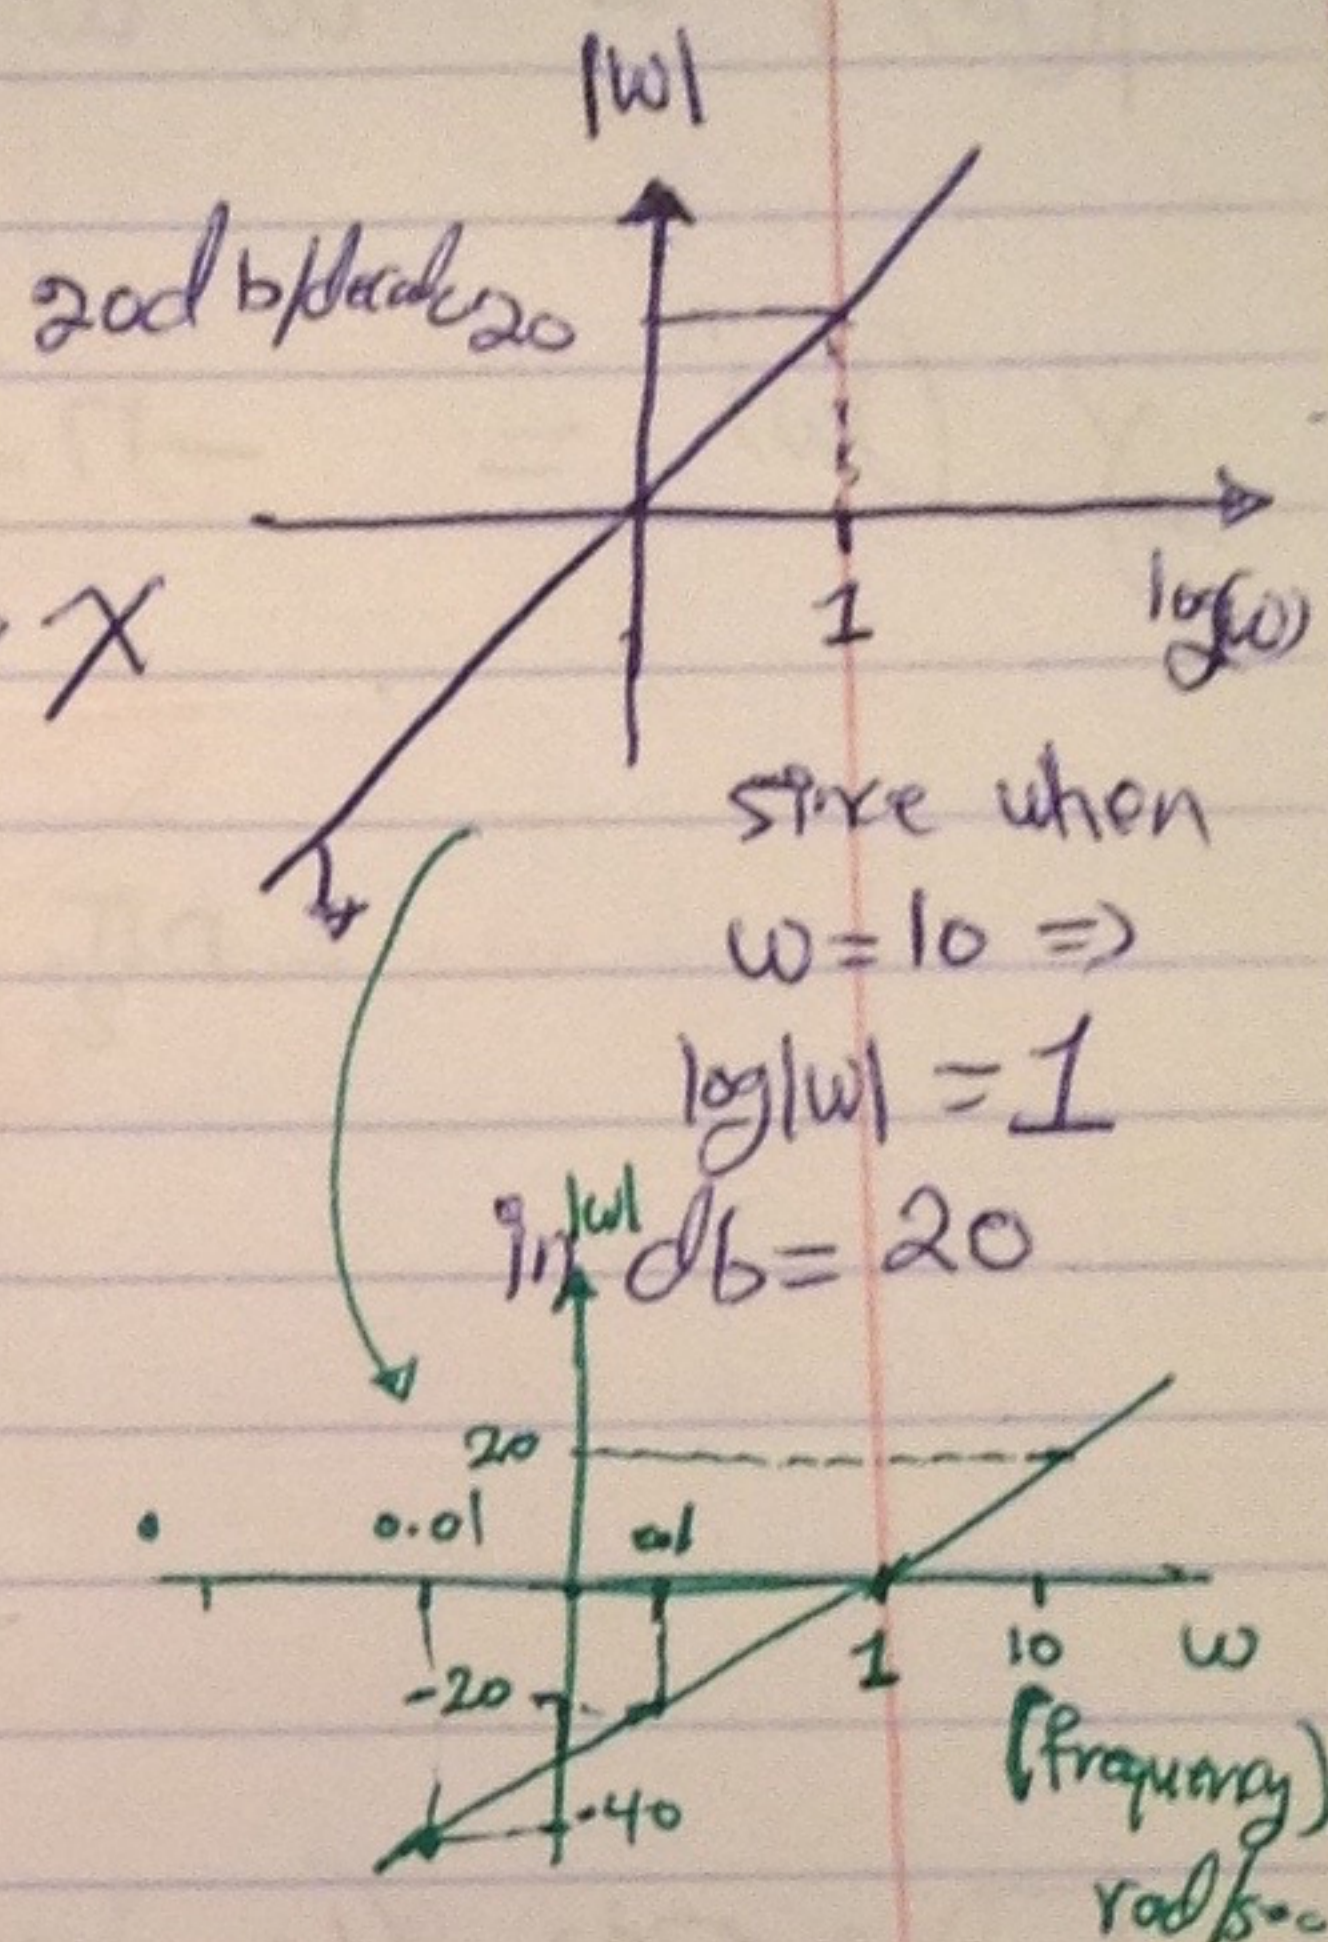 |w|
20db/decade
20
X
1
log(w)
since when
w = 10 =>
log|w| = 1
in db = 20
|w|
20
0.01
1
10
w
-20
-40
(frequency)
rad/sec